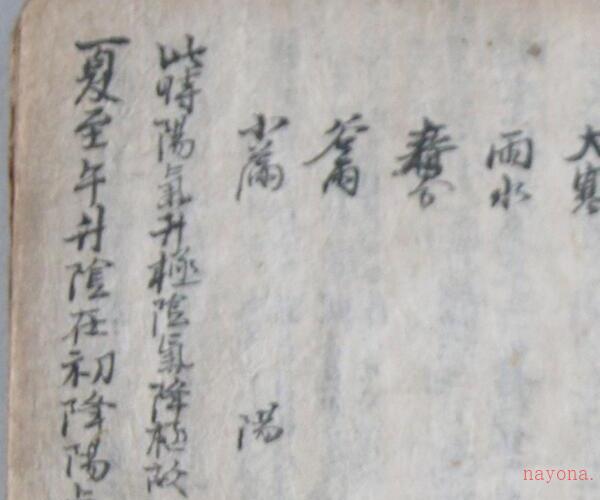 大寒
雨水
春分
谷雨
小滿
陽
此時陽氣升極陰氣降極故
一夏至午升陰在初降陽
nayona.